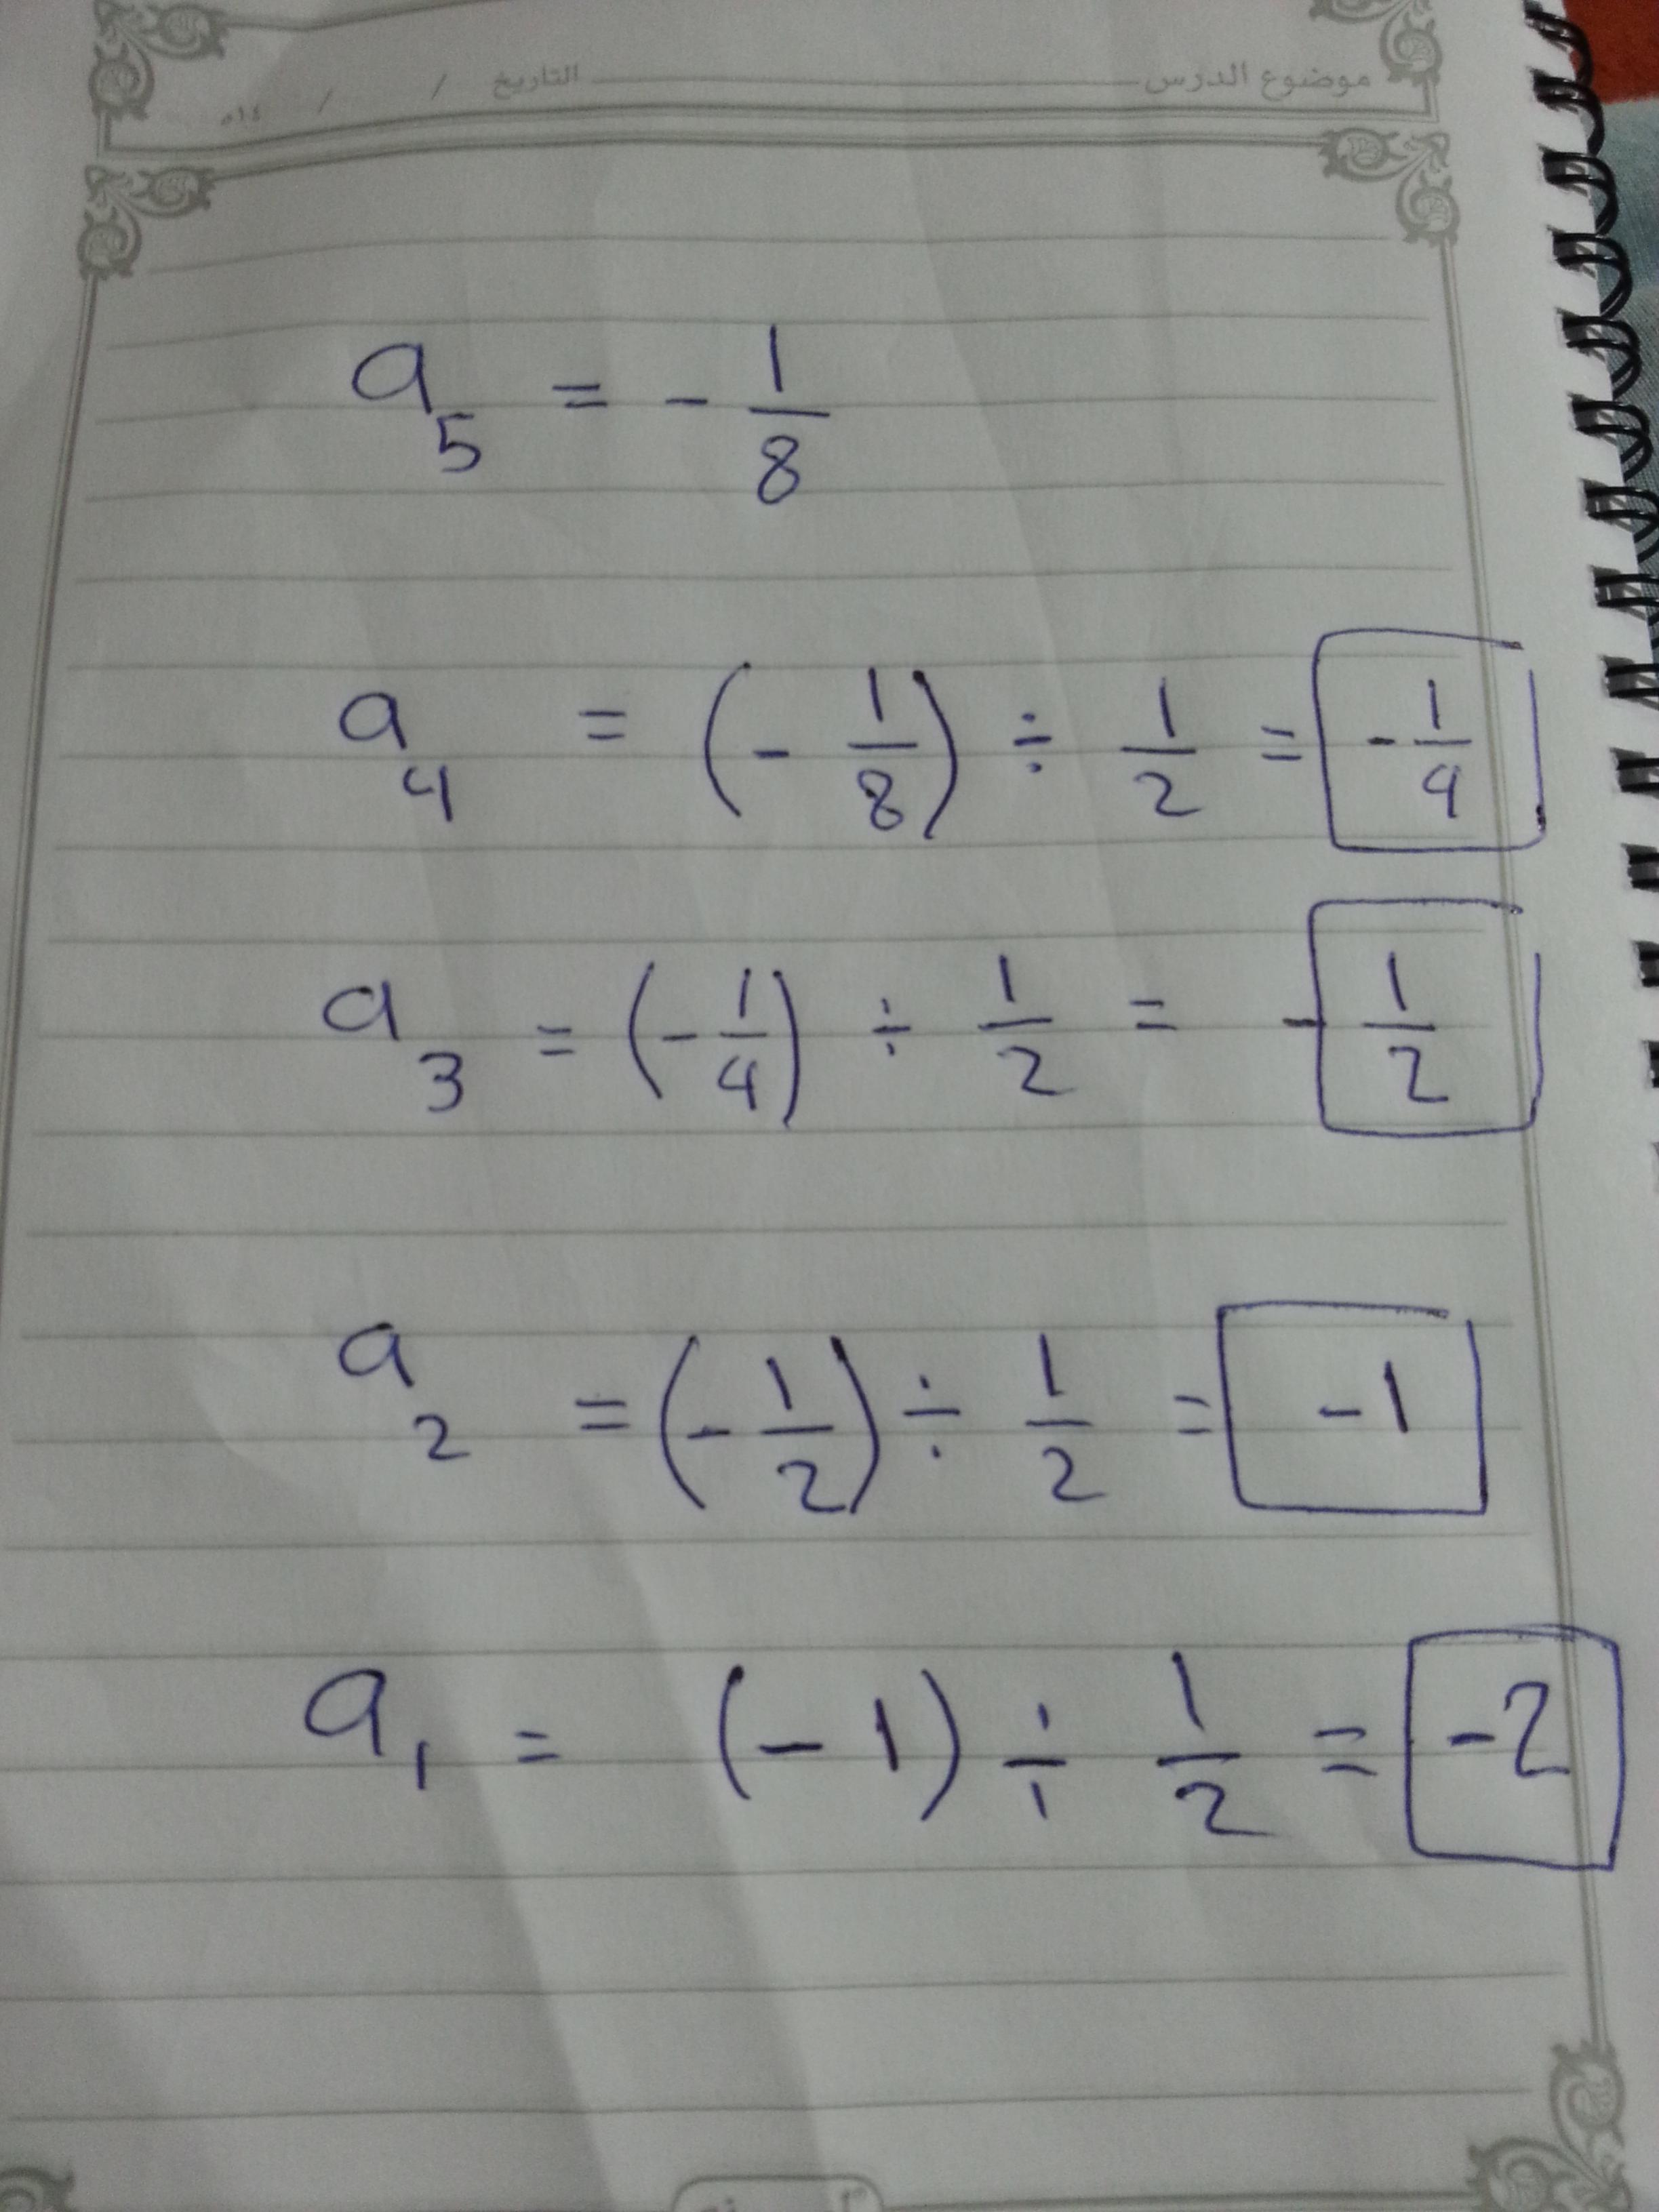 موضوع الدرس التاريخ / / ١٤هـ
a₅ = - 1/8
a₄ = (- 1/8) ÷ 1/2 = - 1/4
a₃ = (- 1/4) ÷ 1/2 = - 1/2
a₂ = (- 1/2) ÷ 1/2 = -1
a₁ = (-1) ÷ 1/2 = -2